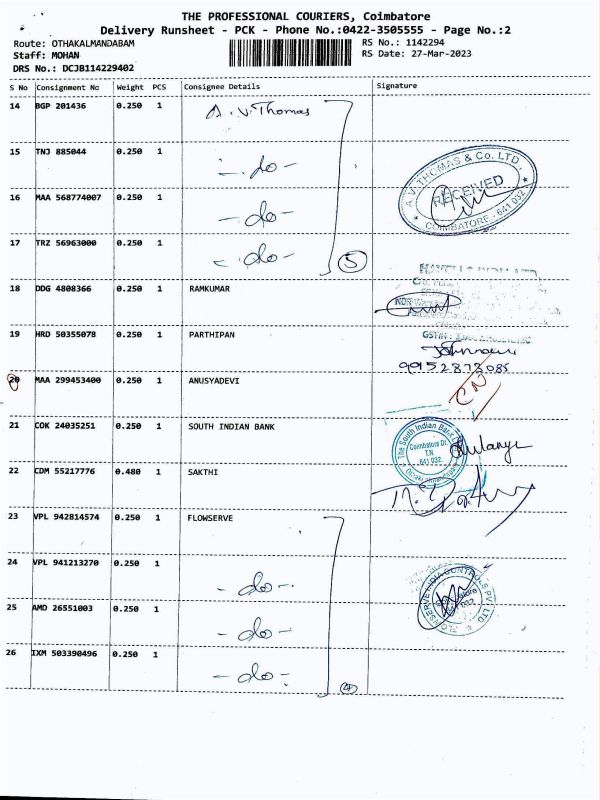 THE PROFESSIONAL COURIERS, Coimbatore
Delivery Runsheet - PCK - Phone No.:0422-3505555 - Page No.:2
Route: OTHAKALMANDABAM
RS No.: 1142294
Staff: MOHAN
RS Date: 27-Mar-2023
DRS No.: DCJB114229402
S No Consignment No Weight PCS Consignee Details Signature
14 BGP 201436 0.250 1 A.V.Thomas
15 TNJ 885044 0.250 1 - do -
A.V. THOMAS & Co. LTD.
RECEIVED
COIMBATORE - 641 032
16 MAA 568774007 0.250 1 - do -
17 TRZ 56963000 0.250 1 - do -
5
18 DDG 4808366 0.250 1 RAMKUMAR
19 HRD 50355078 0.250 1 PARTHIPAN
GSTIN
20 MAA 299453400 0.250 1 ANUSYADEVI
CN
21 COK 24035251 0.250 1 SOUTH INDIAN BANK
The South Indian Bank
Coimbatore Dt.
T.N.
641 032.
22 CDM 55217776 0.480 1 SAKTHI
23 VPL 942814574 0.250 1 FLOWSERVE
24 VPL 941213270 0.250 1 - do -
FLOWSERVE INDIA CONTROLS PVT LTD
25 AMD 26551003 0.250 1 - do -
26 IXM 503390496 0.250 1 - do -
4